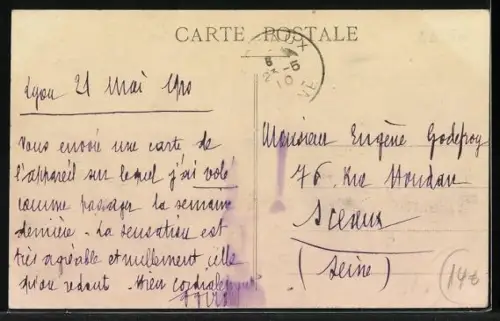 CARTE POSTALE
Lyon 21 Mai 1910
Vous envoie une carte de
l'appareil sur lequel j'ai volé
comme passager la semaine
dernière. La sensation est
très agréable et nullement celle
qu'on redoute. Bien cordialement
Monsieur Eugène Godefroy
76 Rue Houdan
Sceaux
(Seine)
148